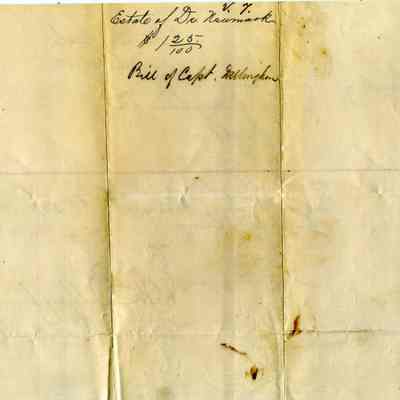 V. 7.
Estate of Dr Newmark
$ 1 25/100
Bill of Capt.